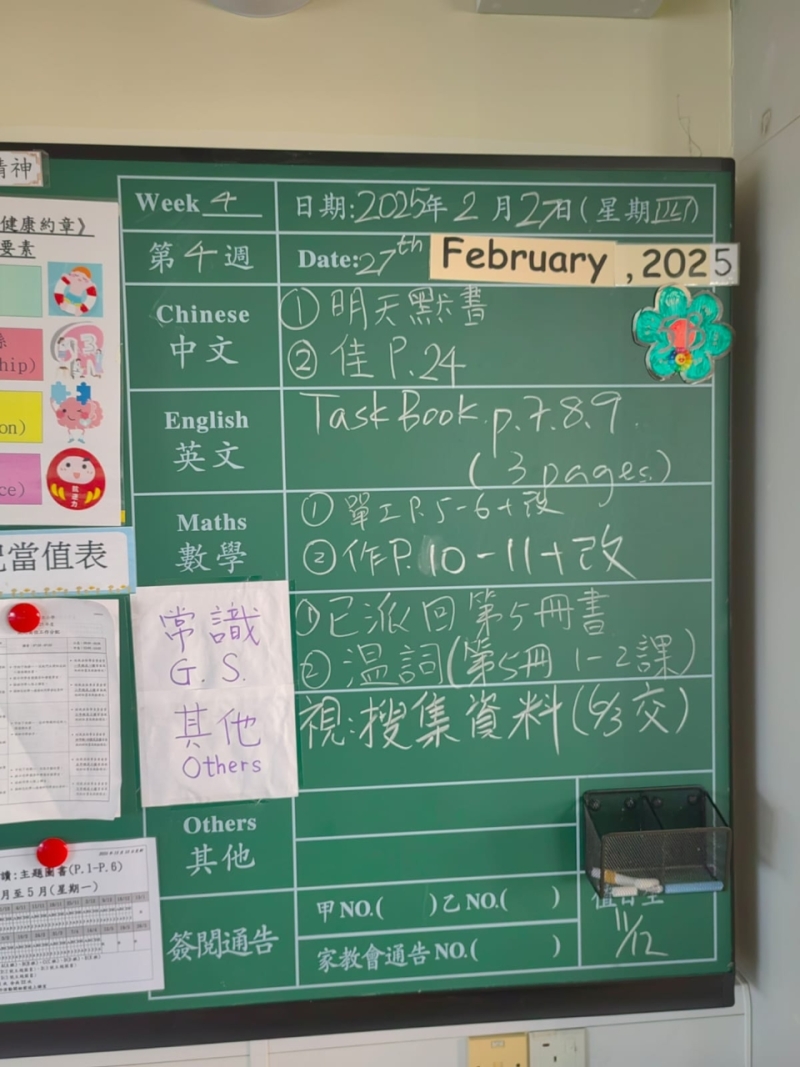 精神
健康約章》
要素
hip)
on)
ce)
當值表
讀:主題圖書(P.1-P.6)
月至5月(星期一)
Week 4
日期:2025年2月27日(星期四)
第4週
Date:27th February, 2025
Chinese
中文
①明天默書
②佳P.24
English
英文
Task Book p.7.8.9.
(3 pages)
Maths
數學
①單工P.5-6+改
②作P.10-11+改
常識
G.S.
①已派回第5冊書
②温詞(第5冊1-2課)
其他
Others
視:搜集資料(6/3交)
Others
其他
簽閱通告
甲NO.( )乙NO.( )
家教會通告NO.( )
值日生
11/12